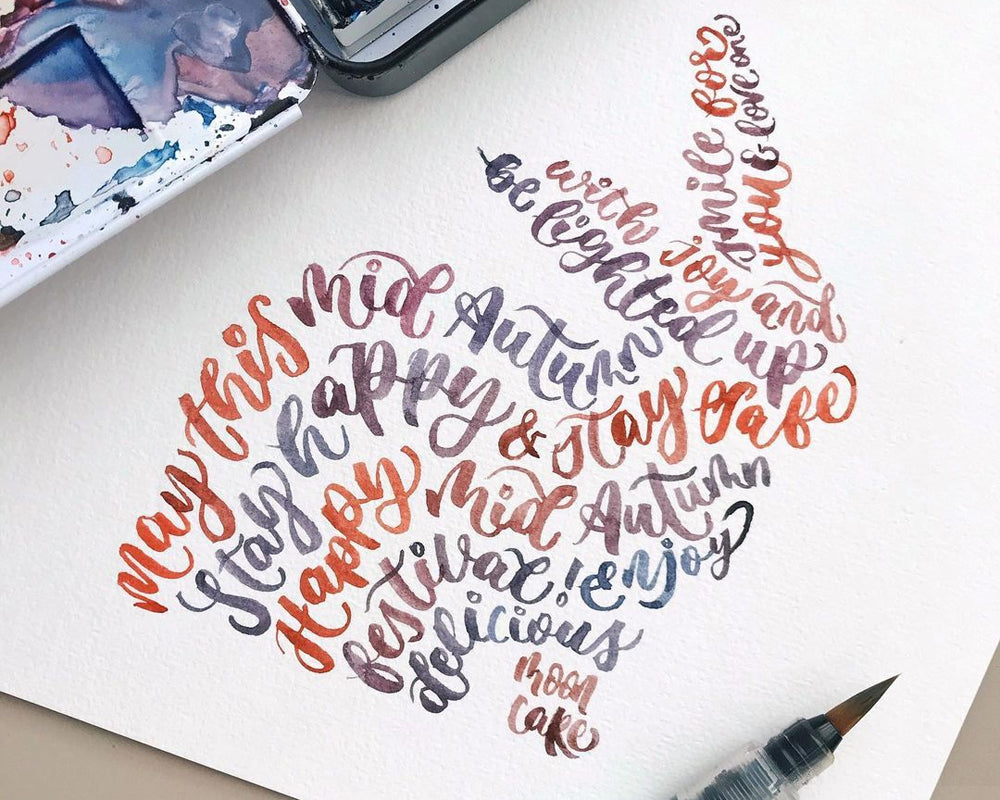 May this Mid Autumn
be lighted up
with joy and
smile for
you & love one
Stay happy & stay safe
Happy Mid Autumn
festival! Enjoy
delicious
moon
cake